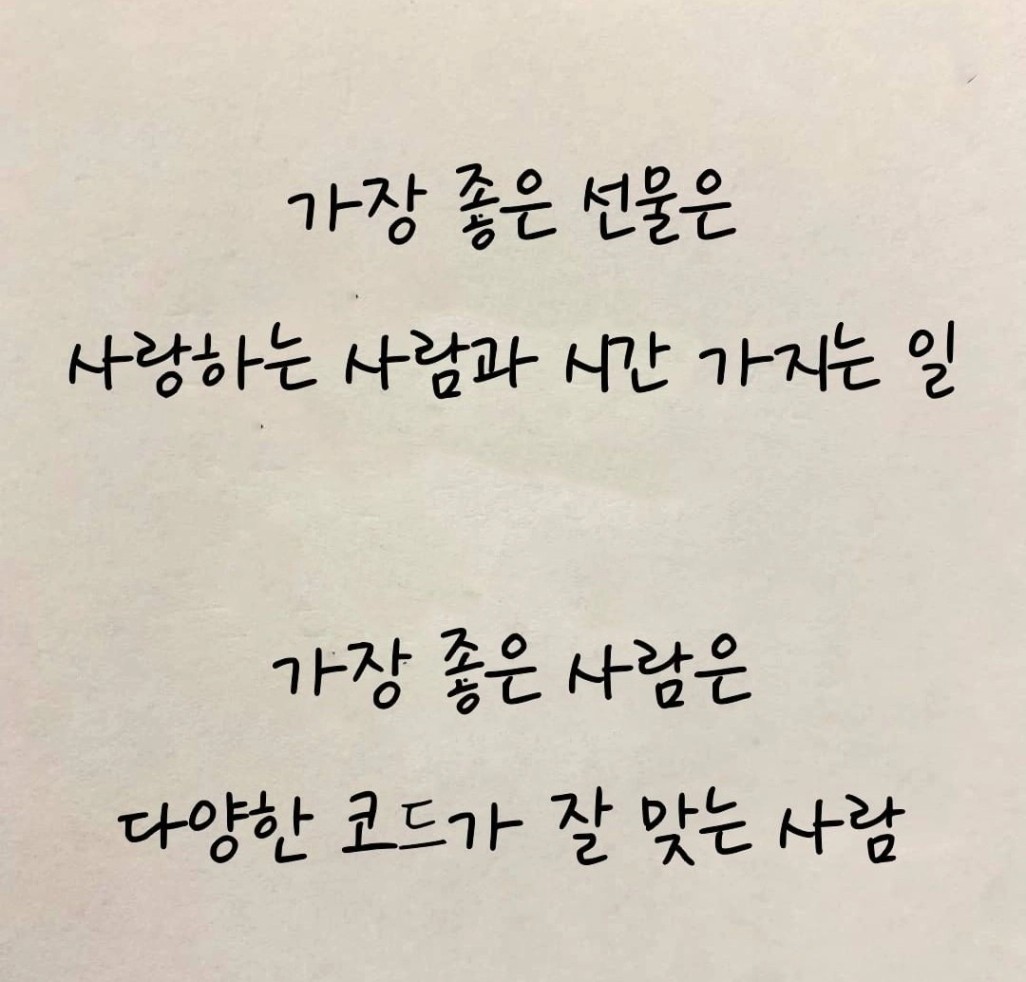 가장 좋은 선물은
사랑하는 사람과 시간 가지는 일
가장 좋은 사람은
다양한 코드가 잘 맞는 사람